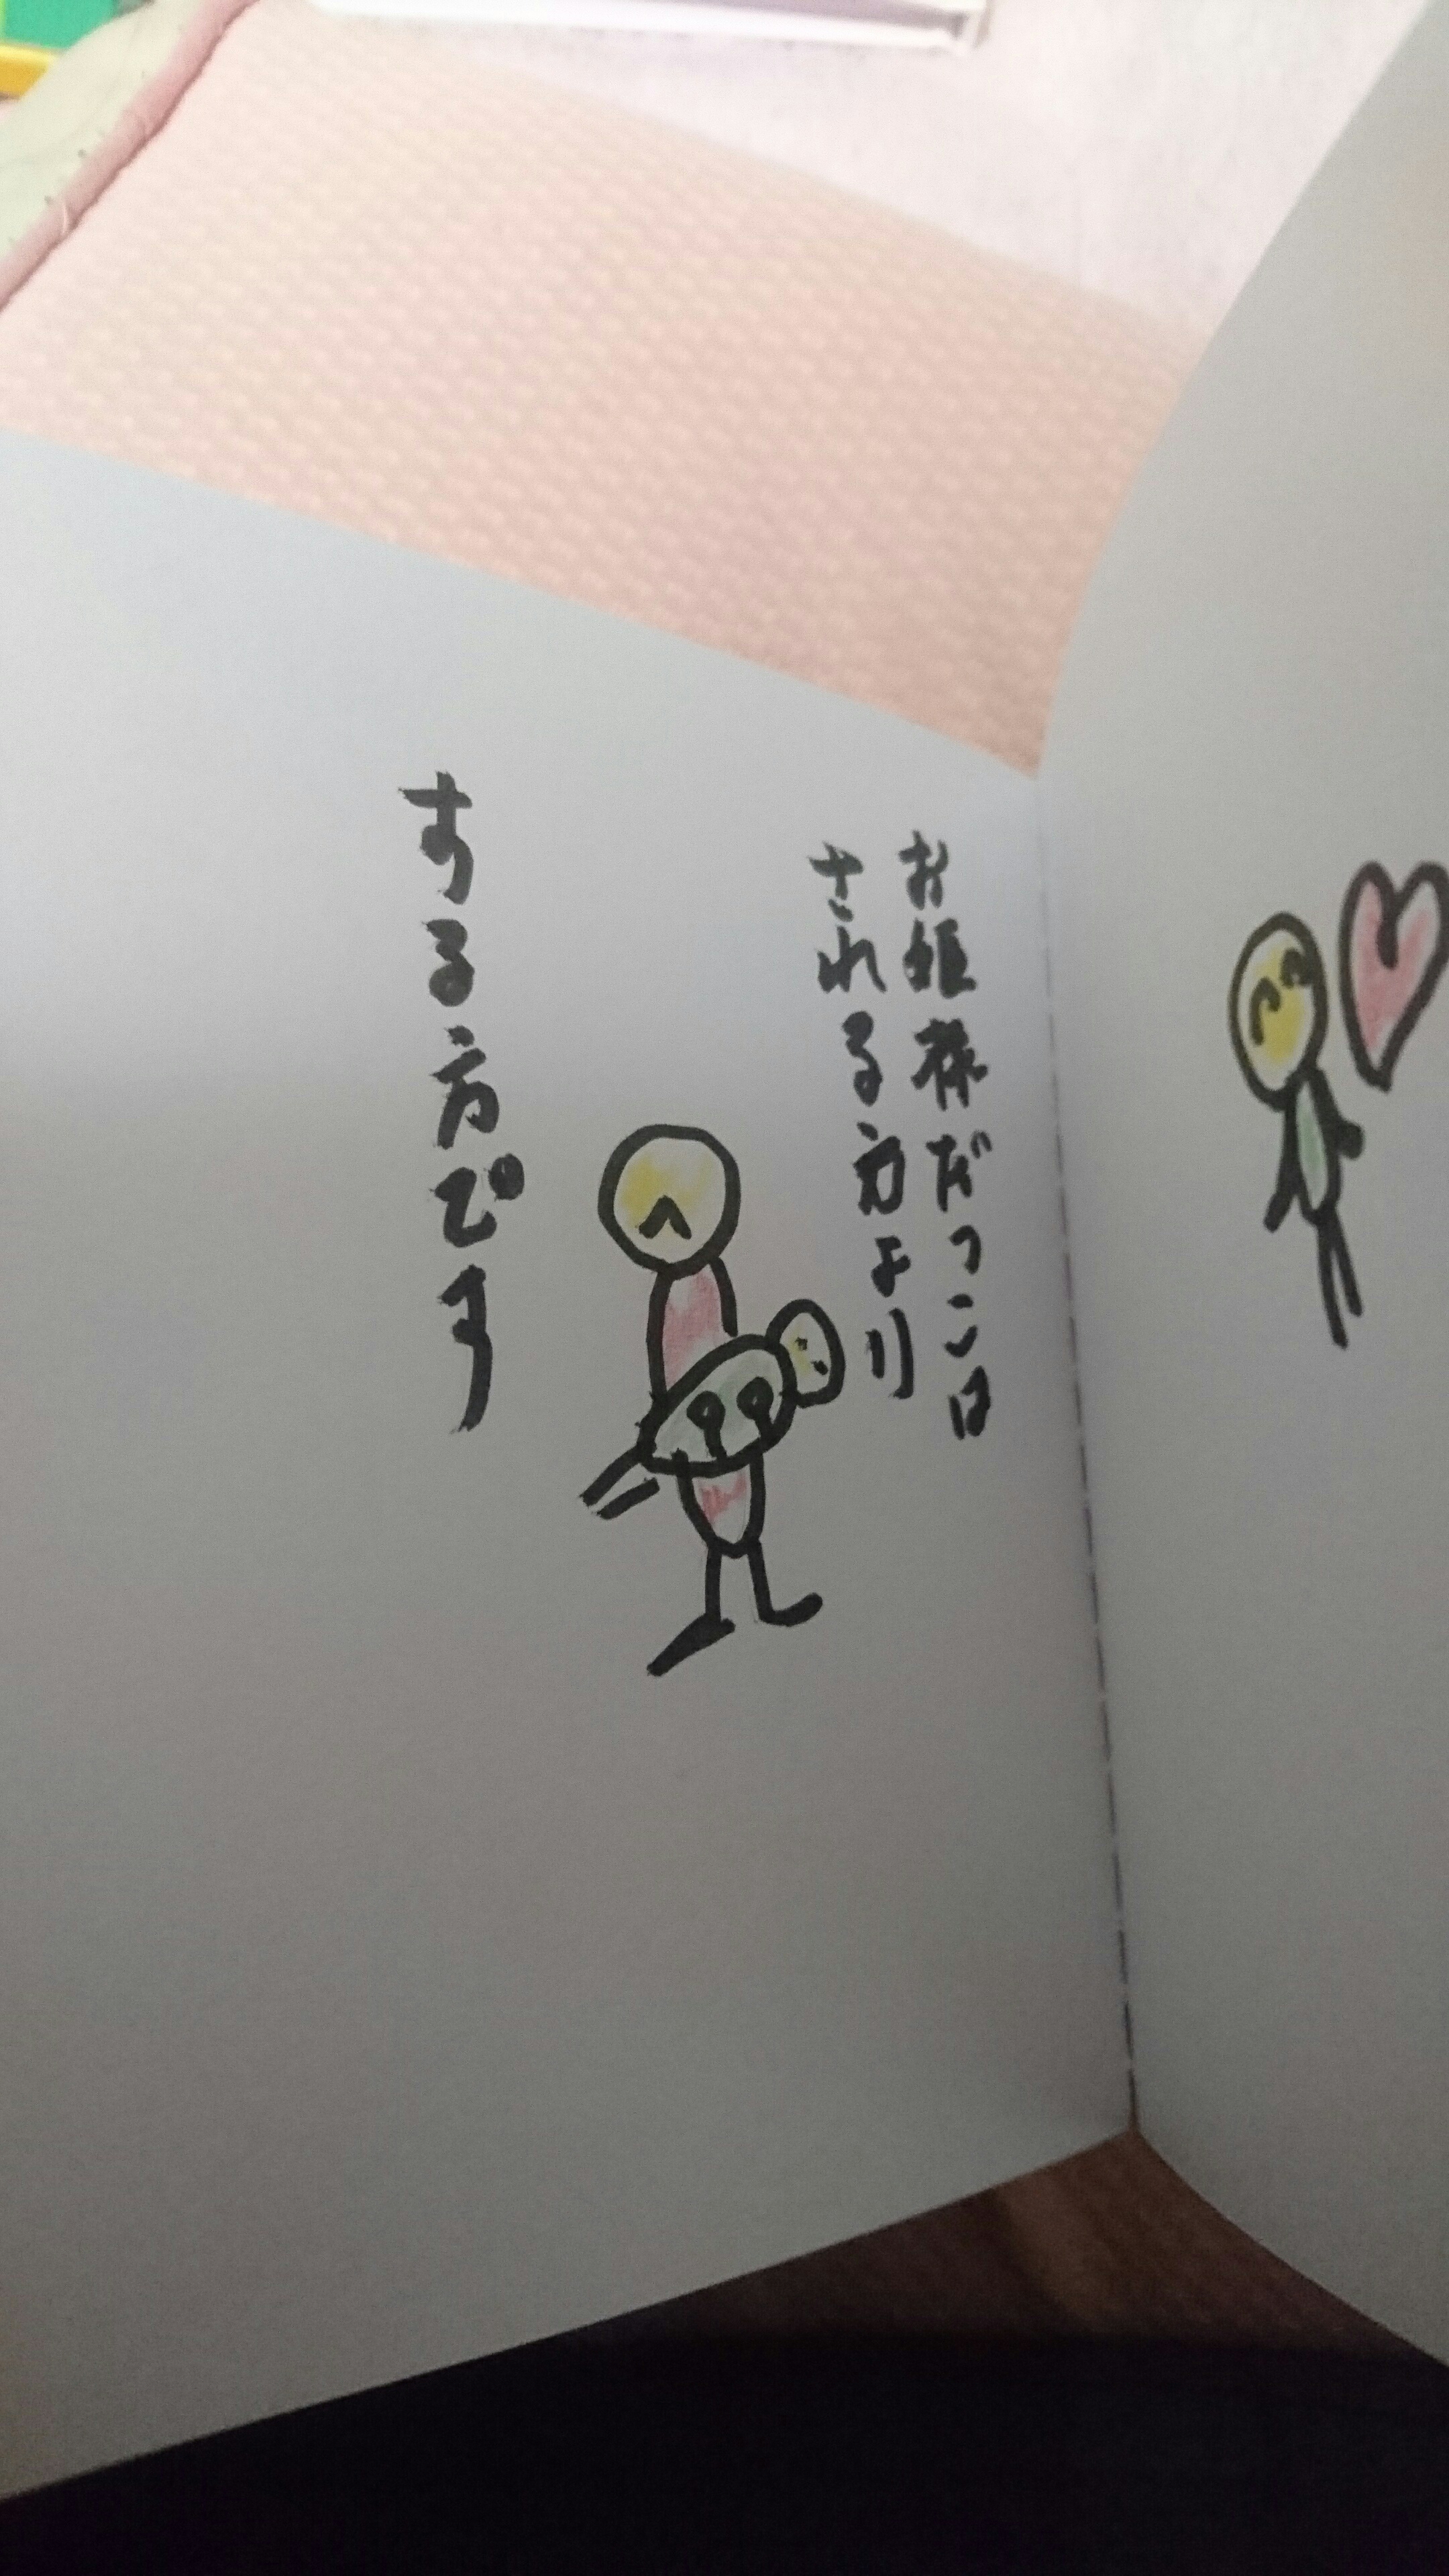 お姫様だっこは
される方より
する方です